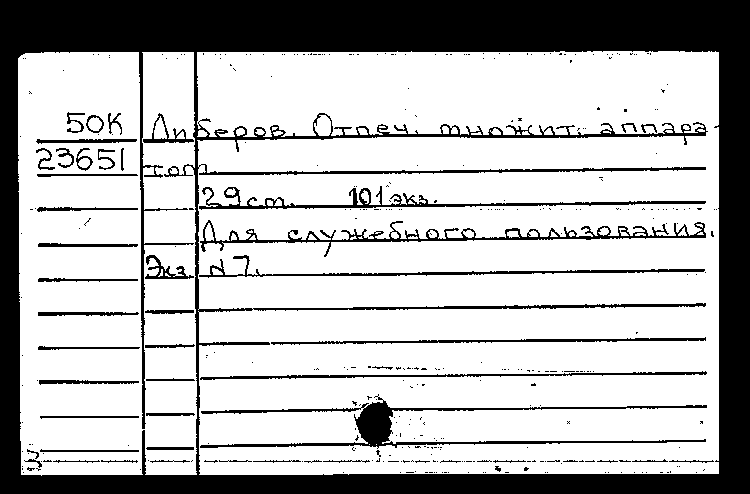 50К Либеров. Отпеч. множит. аппара-
23651 том.
29 ст. 101 экз.
Для служебного пользования.
Экз. N 7.